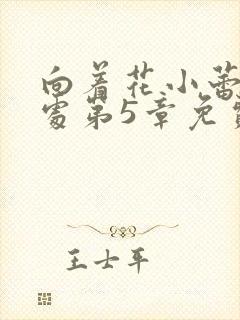 向着花小蕾
处第5章免费
王士平